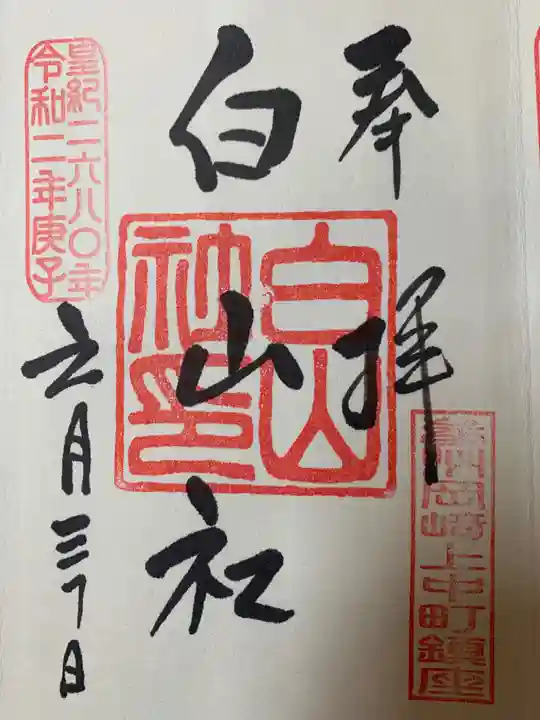 奉拝
白山社
白山
神印
州岡崎上中町鎮座
皇紀二六八〇年
令和二年庚子
六月三十日